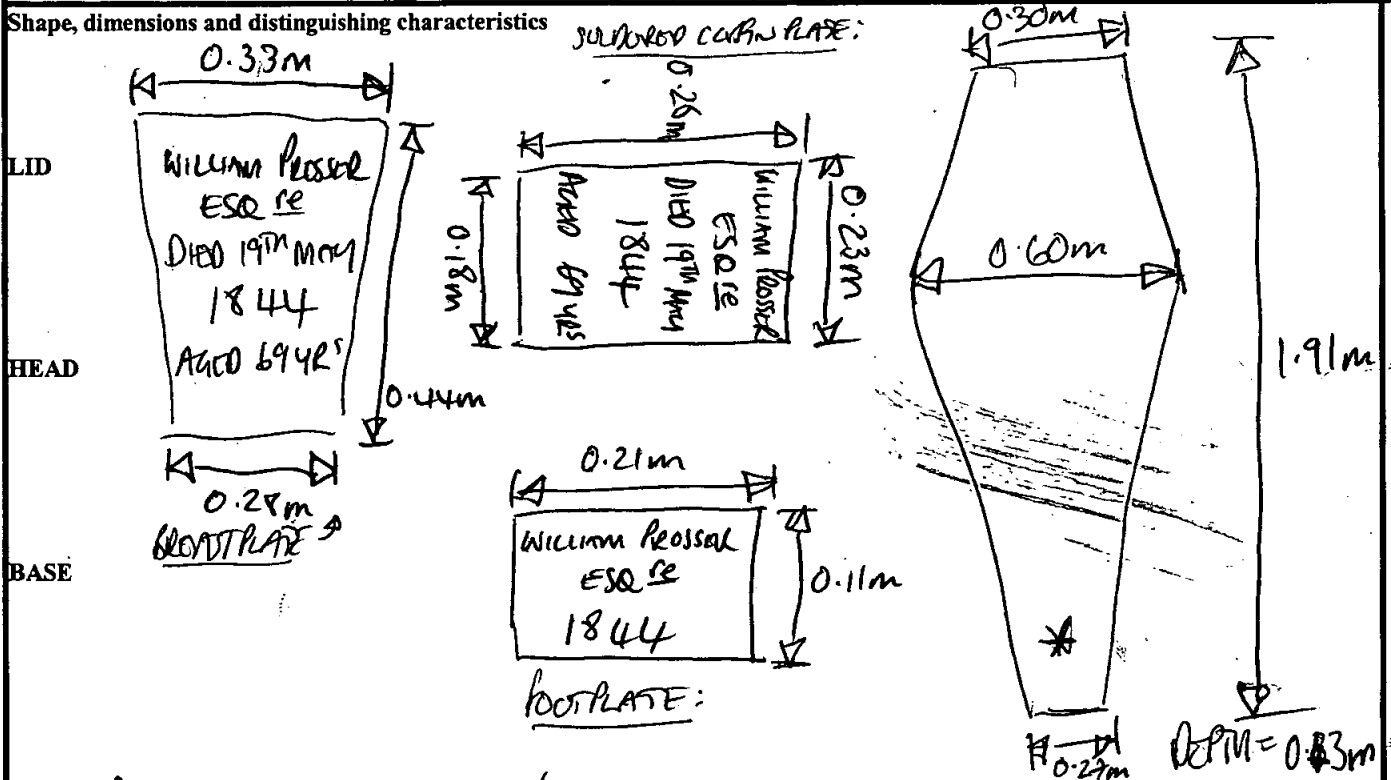 Shape, dimensions and distinguishing characteristics
LID
HEAD
BASE
0.33m
WILLIAM PROSSER
ESQ re
DIED 19TH MAY
1844
AGED 69 YRS
0.44m
0.28m
BREASTPLATE
SOLDERED COFFIN PLATE:
0.26m
0.18m
0.23m
WILLIAM PROSSER
ESQ re
DIED 19TH MAY
1844
AGED 69 YRS
0.21m
WILLIAM PROSSER
ESQ re
1844
0.11m
FOOTPLATE:
0.30m
0.60m
1.91m
*
0.27m
DEPTH =